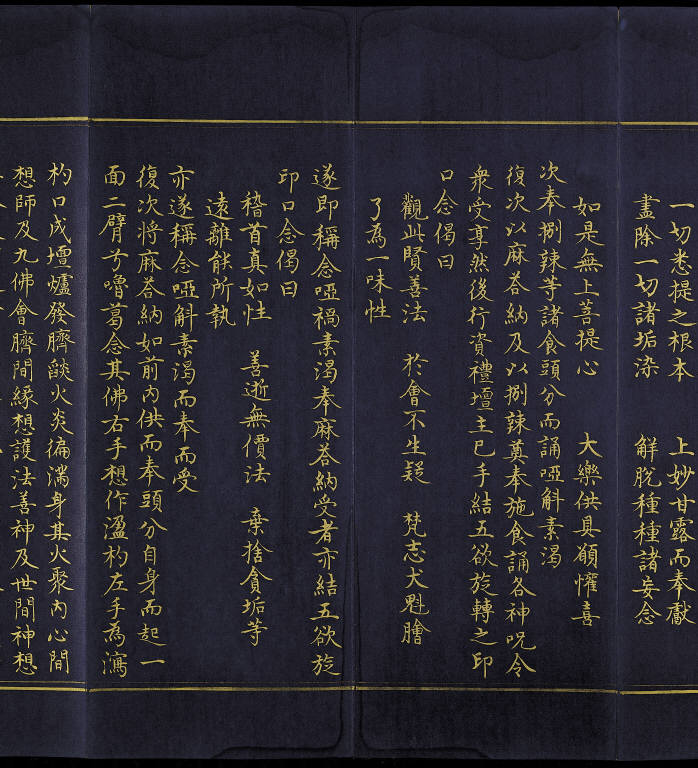 一切悉提之根本　上妙甘露而奉獻
盡除一切諸垢染　解脫種種諸妄念
如是無上菩提心　大樂供具願懽喜
次奉捌辣等諸食頭分而誦啞斛素渴
復次以麻荅納及以捌辣奠奉施食誦各神呪令
衆受享然後行資禮壇主已手結五欲旋轉之印
口念偈曰
觀此賢善法　於會不生疑　梵志犬魁膾
了為一味性
遂即稱念啞禍素渴奉麻荅納受者亦結五欲旋
印口念偈曰
稽首真如性　善逝無價法　棄捨貪垢等
遠離能所執
亦遂稱念啞斛素渴而奉而受
復次將麻荅納如前內供而奉頭分自身而起一
面二臂兮嚕葛念其佛右手想作溫杓左手為瀉
杓口成壇爐發臍燄火炎徧滿身其火聚內心間
想師及九佛會臍間緣想護法善神及世間神想